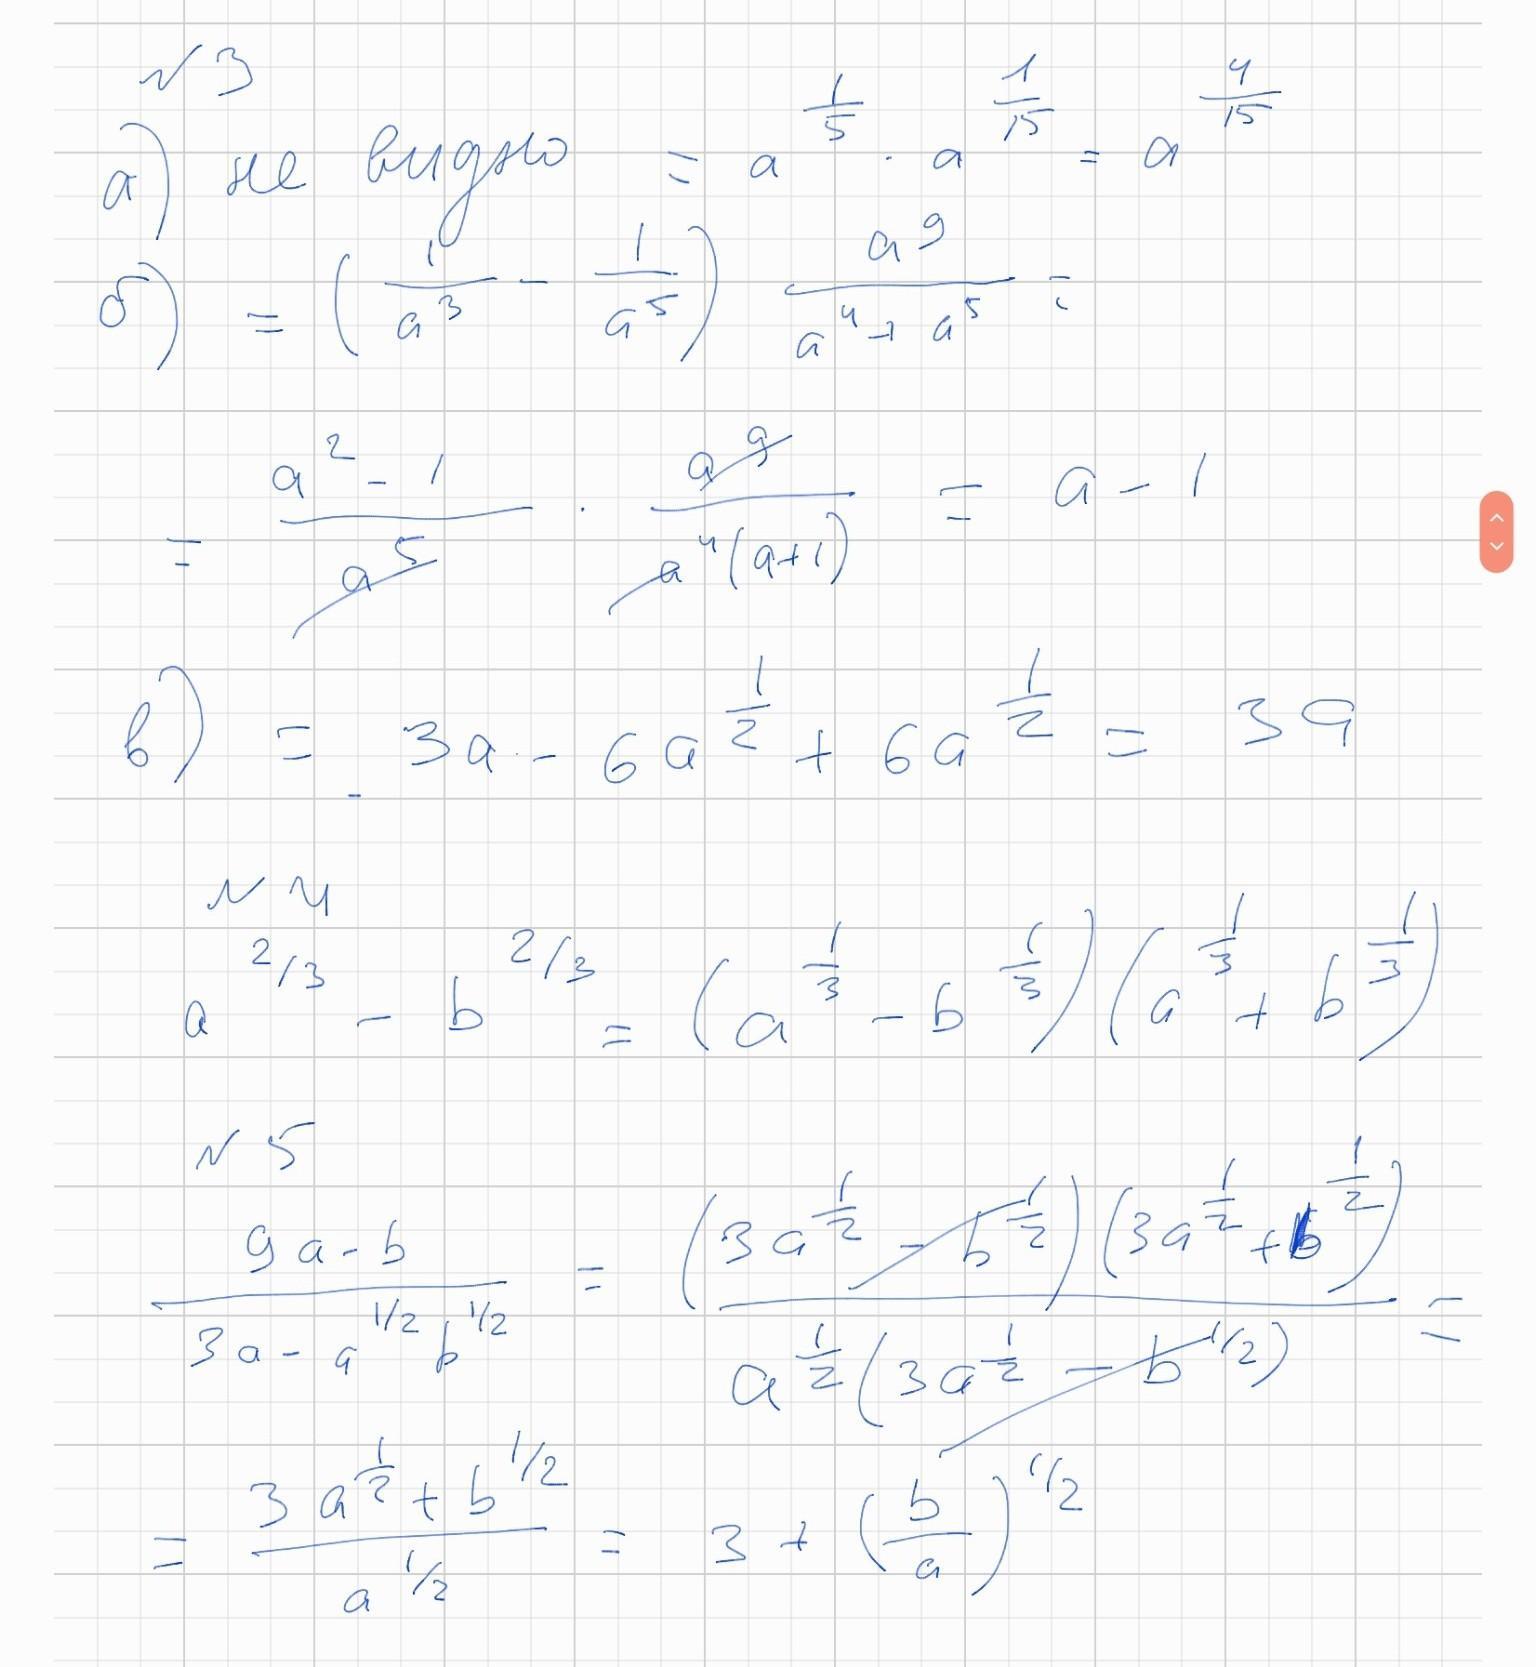 N 3
а) не видно = a^(1/5) · a^(1/15) = a^(4/15)
б) = (1/a^3 - 1/a^5) a^9/(a^4 + a^5) =
= (a^2 - 1)/a^5 · a^9/(a^4(a+1)) = a - 1
в) = 3a - 6a^(1/2) + 6a^(1/2) = 3a
N 4
a^(2/3) - b^(2/3) = (a^(1/3) - b^(1/3))(a^(1/3) + b^(1/3))
N 5
(9a - b)/(3a - a^(1/2) b^(1/2)) = (3a^(1/2) - b^(1/2))(3a^(1/2) + b^(1/2))/(a^(1/2)(3a^(1/2) - b^(1/2))) =
= (3a^(1/2) + b^(1/2))/a^(1/2) = 3 + (b/a)^(1/2)